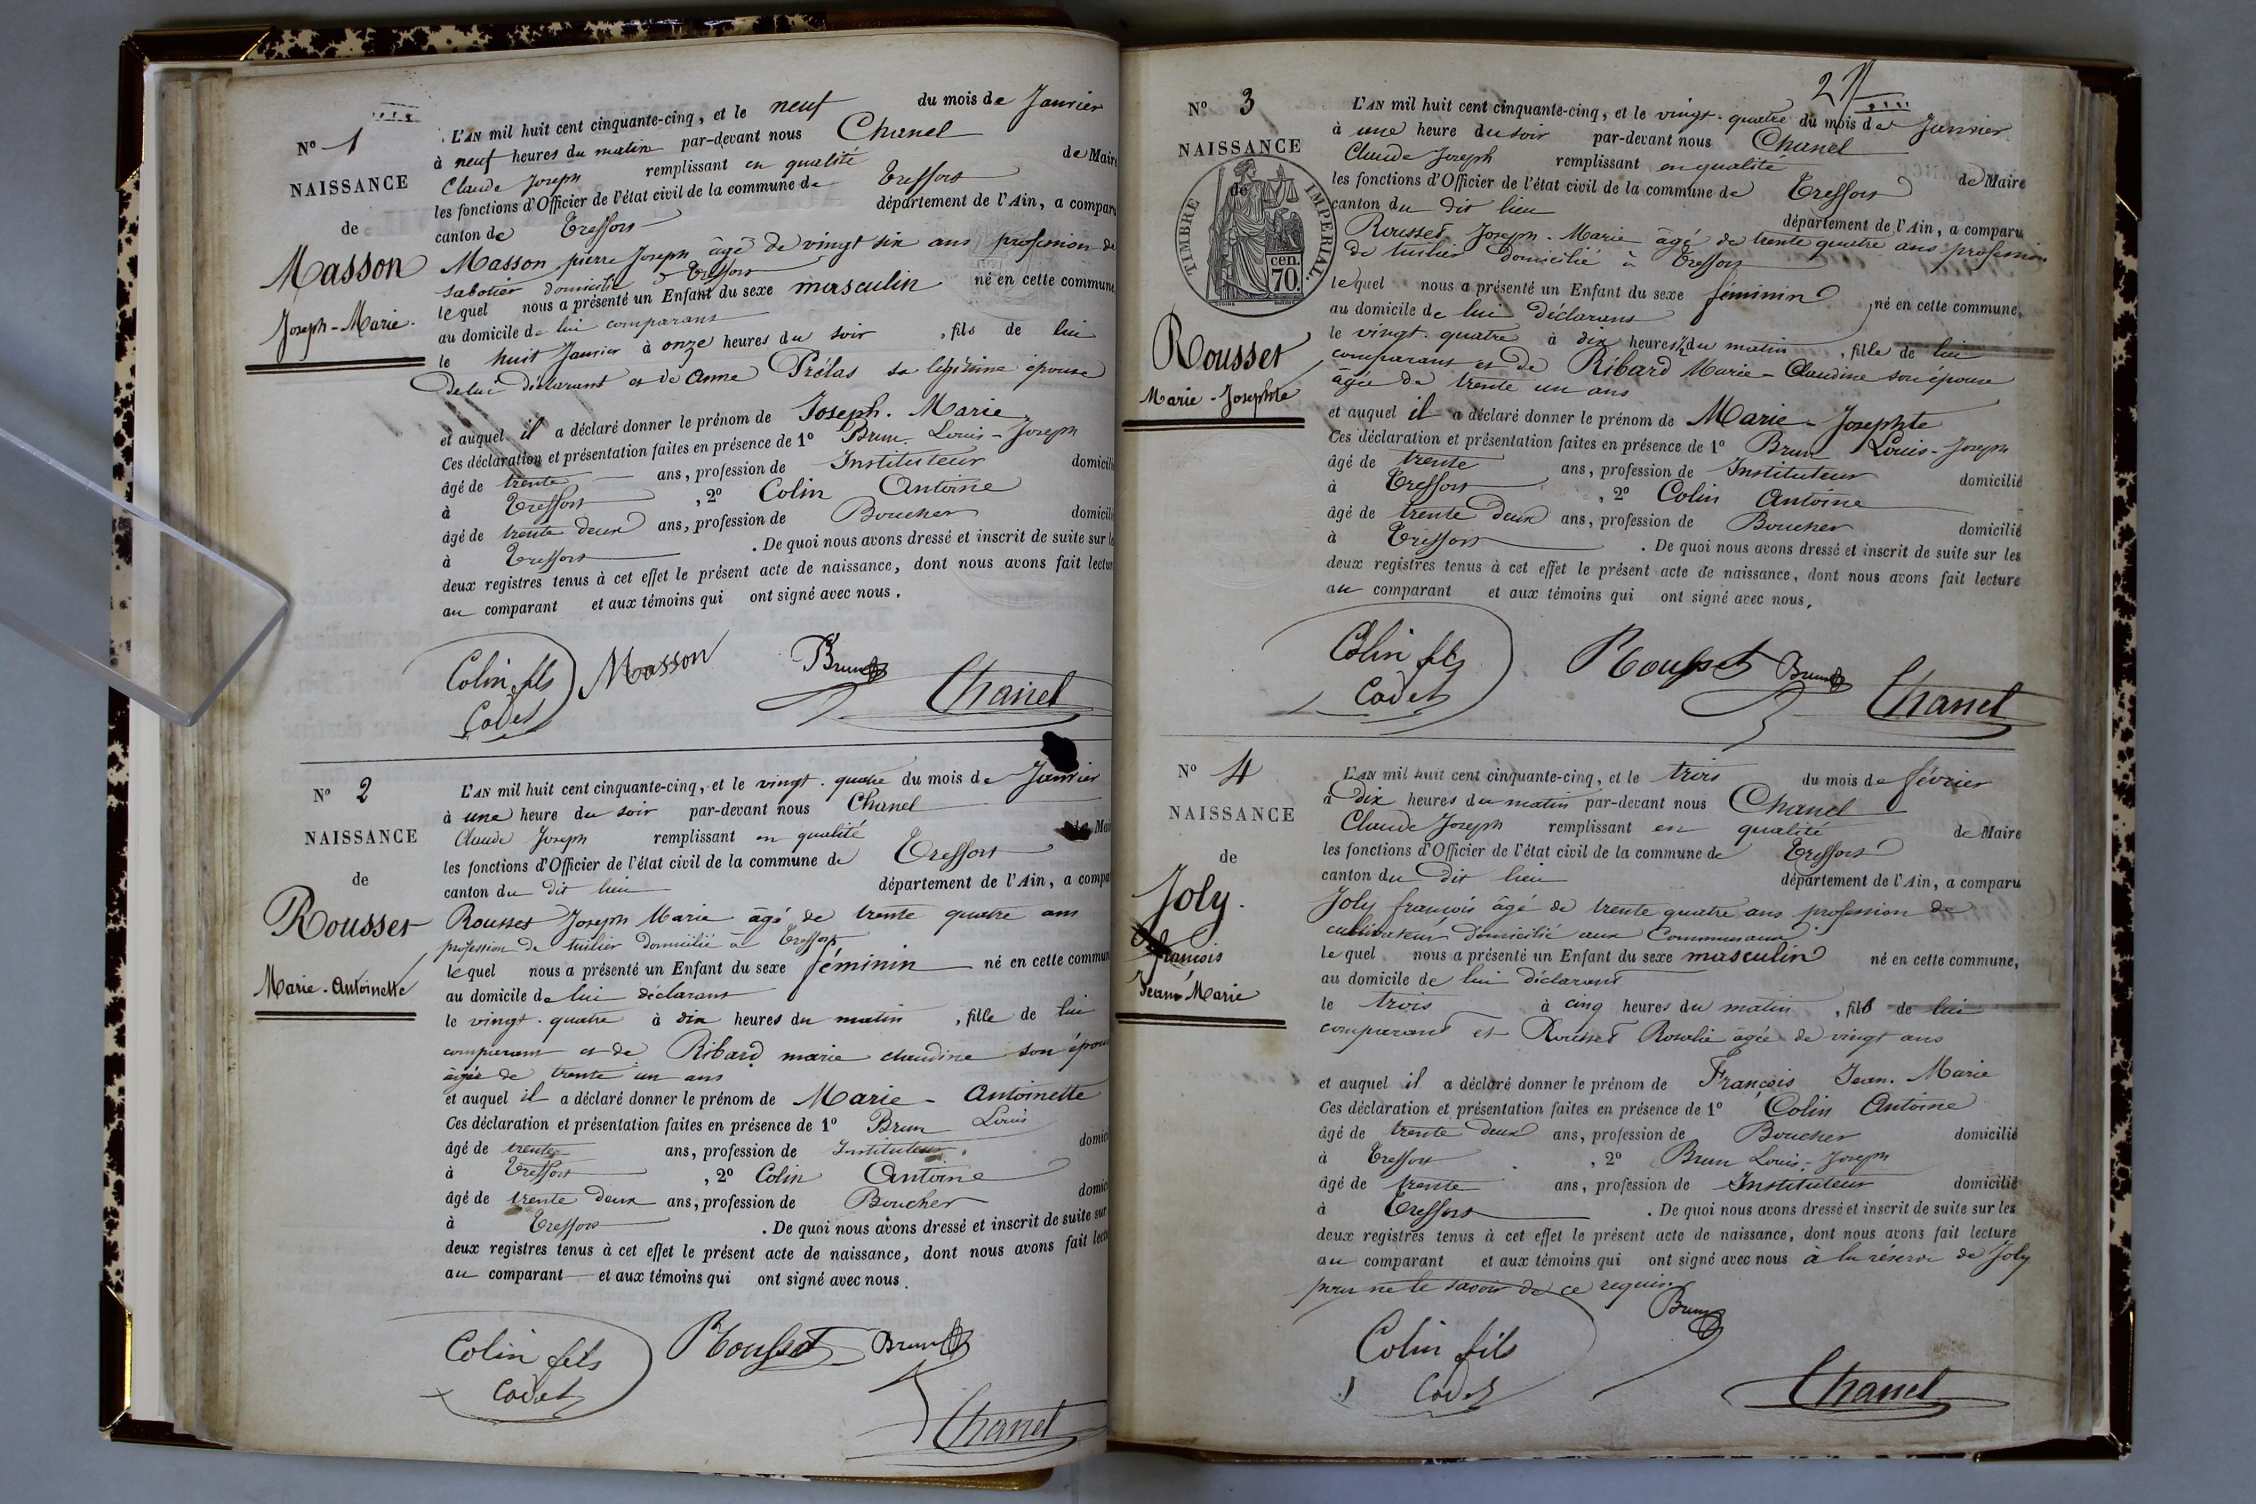 N° 1
NAISSANCE
de
Masson
Joseph-Marie.
L'AN mil huit cent cinquante-cinq, et le neuf du mois de Janvier
à neuf heures du matin par-devant nous Chanel
Claude Joseph remplissant en qualité de Maire
les fonctions d'Officier de l'état civil de la commune de Treffort
canton de Treffort département de l'Ain, a comparu
Masson pierre Joseph âgé de vingt six ans profession de
sabotier domicilié à Treffort
lequel nous a présenté un Enfant du sexe masculin né en cette commune
au domicile de lui comparant
le huit Janvier à onze heures du soir, fils de lui
de lui déclarant et de Anne Prélas sa légitime épouse
et auquel il a déclaré donner le prénom de Joseph. Marie
Ces déclaration et présentation faites en présence de 1° Brun. Louis-Joseph
âgé de trente ans, profession de Instituteur domicilié
à Treffort, 2° Colin Antoine
âgé de trente deux ans, profession de Boucher domicilié
à Treffort. De quoi nous avons dressé et inscrit de suite sur les
deux registres tenus à cet effet le présent acte de naissance, dont nous avons fait lecture
au comparant et aux témoins qui ont signé avec nous.
Colin fils Masson Brun
Cadet Chanel
N° 2
NAISSANCE
de
Rousset
Marie-Antoinette
L'AN mil huit cent cinquante-cinq, et le vingt-quatre du mois de Janvier
à une heure du soir par-devant nous Chanel
Claude Joseph remplissant en qualité de Maire
les fonctions d'Officier de l'état civil de la commune de Treffort
canton du dit lieu département de l'Ain, a comparu
Rousset Joseph Marie âgé de trente quatre ans
profession de tuilier domicilié à Treffort
lequel nous a présenté un Enfant du sexe féminin né en cette commune
au domicile de lui déclarant
le vingt-quatre à dix heures du matin, fille de lui
comparant et de Ribard marie claudine son épouse
âgée de trente un ans
et auquel il a déclaré donner le prénom de Marie-Antoinette
Ces déclaration et présentation faites en présence de 1° Brun Louis
âgé de trente ans, profession de Instituteur domicilié
à Treffort, 2° Colin Antoine
âgé de trente deux ans, profession de Boucher domicilié
à Treffort. De quoi nous avons dressé et inscrit de suite sur
deux registres tenus à cet effet le présent acte de naissance, dont nous avons fait lecture
au comparant et aux témoins qui ont signé avec nous.
Colin fils Rousset Brun
Cadet
Chanel
2
N° 3
NAISSANCE
de
TIMBRE IMPERIAL.
70 cen.
Rousset
Marie-Josephte
L'AN mil huit cent cinquante-cinq, et le vingt-quatre du mois de Janvier
à une heure du soir par-devant nous Chanel
Claude Joseph remplissant en qualité de Maire
les fonctions d'Officier de l'état civil de la commune de Treffort
canton du dit lieu département de l'Ain, a comparu
Rousset Joseph-Marie âgé de trente quatre ans profession
de tuilier domicilié à Treffort
lequel nous a présenté un Enfant du sexe féminin, né en cette commune,
au domicile de lui déclarant
le vingt-quatre à dix heures ½ du matin, fille de lui
comparant et de Ribard Marie-Claudine son épouse
âgée de trente un ans
et auquel il a déclaré donner le prénom de Marie-Josephte
Ces déclaration et présentation faites en présence de 1° Brun Louis-Joseph
âgé de trente ans, profession de Instituteur domicilié
à Treffort, 2° Colin Antoine
âgé de trente deux ans, profession de Boucher domicilié
à Treffort. De quoi nous avons dressé et inscrit de suite sur les
deux registres tenus à cet effet le présent acte de naissance, dont nous avons fait lecture
au comparant et aux témoins qui ont signé avec nous.
Colin fils Rousset Brun
Cadet Chanel
N° 4
NAISSANCE
de
Joly.
françois
Jean-Marie
L'AN mil huit cent cinquante-cinq, et le trois du mois de février
à dix heures du matin par-devant nous Chanel
Claude Joseph remplissant en qualité de Maire
les fonctions d'Officier de l'état civil de la commune de Treffort
canton du dit lieu département de l'Ain, a comparu
Joly françois âgé de trente quatre ans profession de
cultivateur domicilié aux Communaux
lequel nous a présenté un Enfant du sexe masculin né en cette commune,
au domicile de lui déclarant
le trois à cinq heures du matin, fils de lui
comparant et Rousset Rosalie âgée de vingt ans
et auquel il a déclaré donner le prénom de François Jean-Marie
Ces déclaration et présentation faites en présence de 1° Colin Antoine
âgé de trente deux ans, profession de Boucher domicilié
à Treffort, 2° Brun Louis-Joseph
âgé de trente ans, profession de Instituteur domicilié
à Treffort. De quoi nous avons dressé et inscrit de suite sur les
deux registres tenus à cet effet le présent acte de naissance, dont nous avons fait lecture
au comparant et aux témoins qui ont signé avec nous à la réserve de Joly
pour ne le savoir de ce requis
Brun
Colin fils
Cadet Chanel